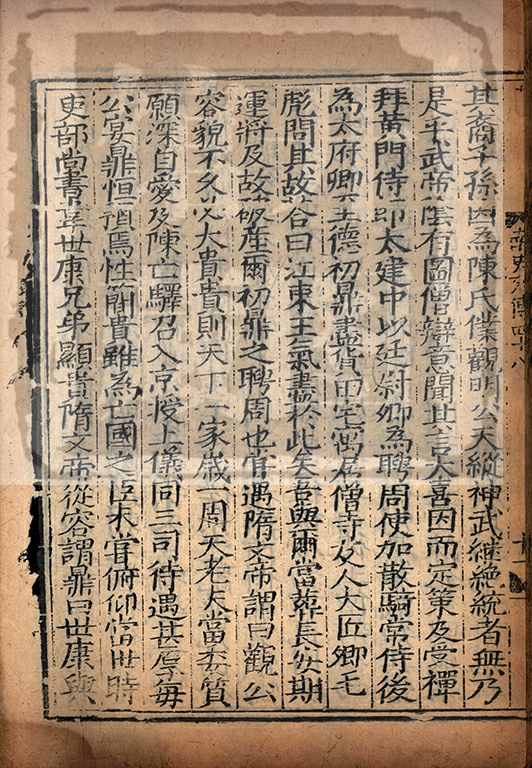 其裔子孫因為陳氏僕觀明公天縱神武繼絶統者無乃
是乎武帝陰有圖僧辯意聞其言大喜因而定策及受禪
拜黃門侍郎太建中以廷尉卿為聘周使加散騎常侍後
為太府卿至德初鼎盡貨田宅寓居僧寺友人大匠卿毛
彪問其故答曰江東王氣盡於此矣吾與爾當葬長安期
運將及故破產爾初鼎之聘周也嘗遇隋文帝謂曰觀公
容貌不久必大貴貴則天下一家歲一周天老夫當委質
願深自愛及陳亡驛召入京授上儀同三司待遇甚厚每
公宴鼎恒預焉性簡貴雖為亡國之臣未嘗俯仰當世時
吏部尚書韋世康兄弟顯貴隋文帝從容謂鼎曰世康與